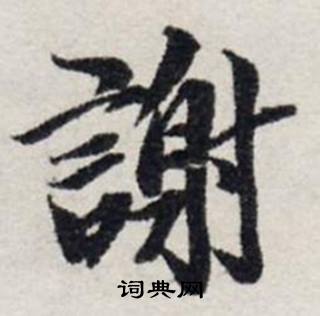 謝
词典网